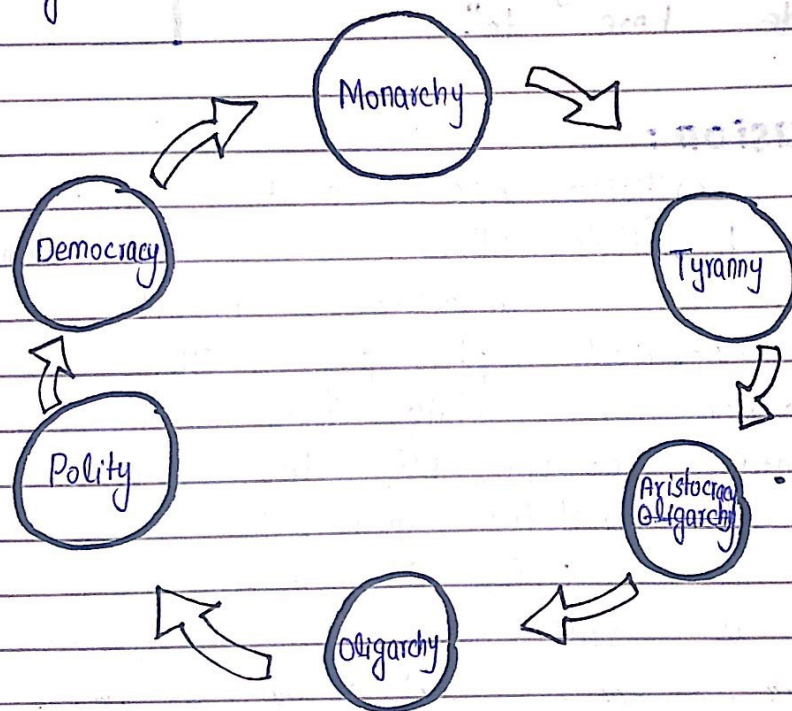 Monarchy
Tyranny
Aristocracy
Oligarchy
Oligarchy
Polity
Democracy